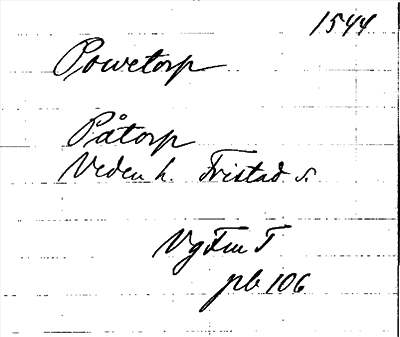 1544
Powetorp
Påtorp
Veden h. Fristad s.
Vg Fm T
pb 106